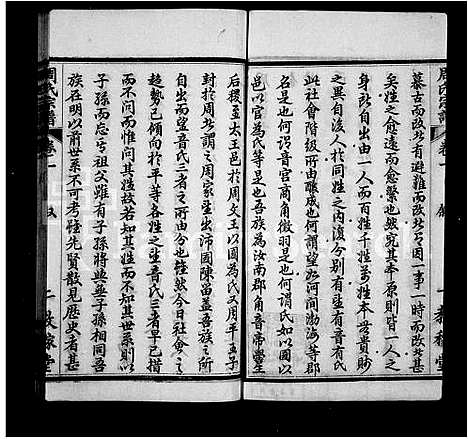 慕古而改者有避難而改者有因一事一時而改者甚
矣姓之愈遠而愈繫也然究其本原則皆一人之
身所自出由一而百姓千姓萬姓本無貴賤
之異自法人於同姓之內復分別有望有音有氏
而社會階級所由釀成也何謂望如河間渤海等郡
名是也何謂音宮商角徵羽是也何謂氏如以國以
邑以官以字是也吾族為汝南郡角音帝嚳生
后稷至太王邑於周文王以國為氏又周平王子
封於周者之周家望出沛國陳留蓋吾族之所
自出而望音氏三者之所由分也然今日社會之
趨勢已傾向於平等各姓之望音氏已捐
而不問而僅問其姓故若知其姓而不知其世系則以
子孫而忘其祖父雖有子孫將與無子孫相同吾
族在明以前世系不可考雖先賢散見歷史者甚
周氏宗譜
卷一
周氏宗譜
卷一